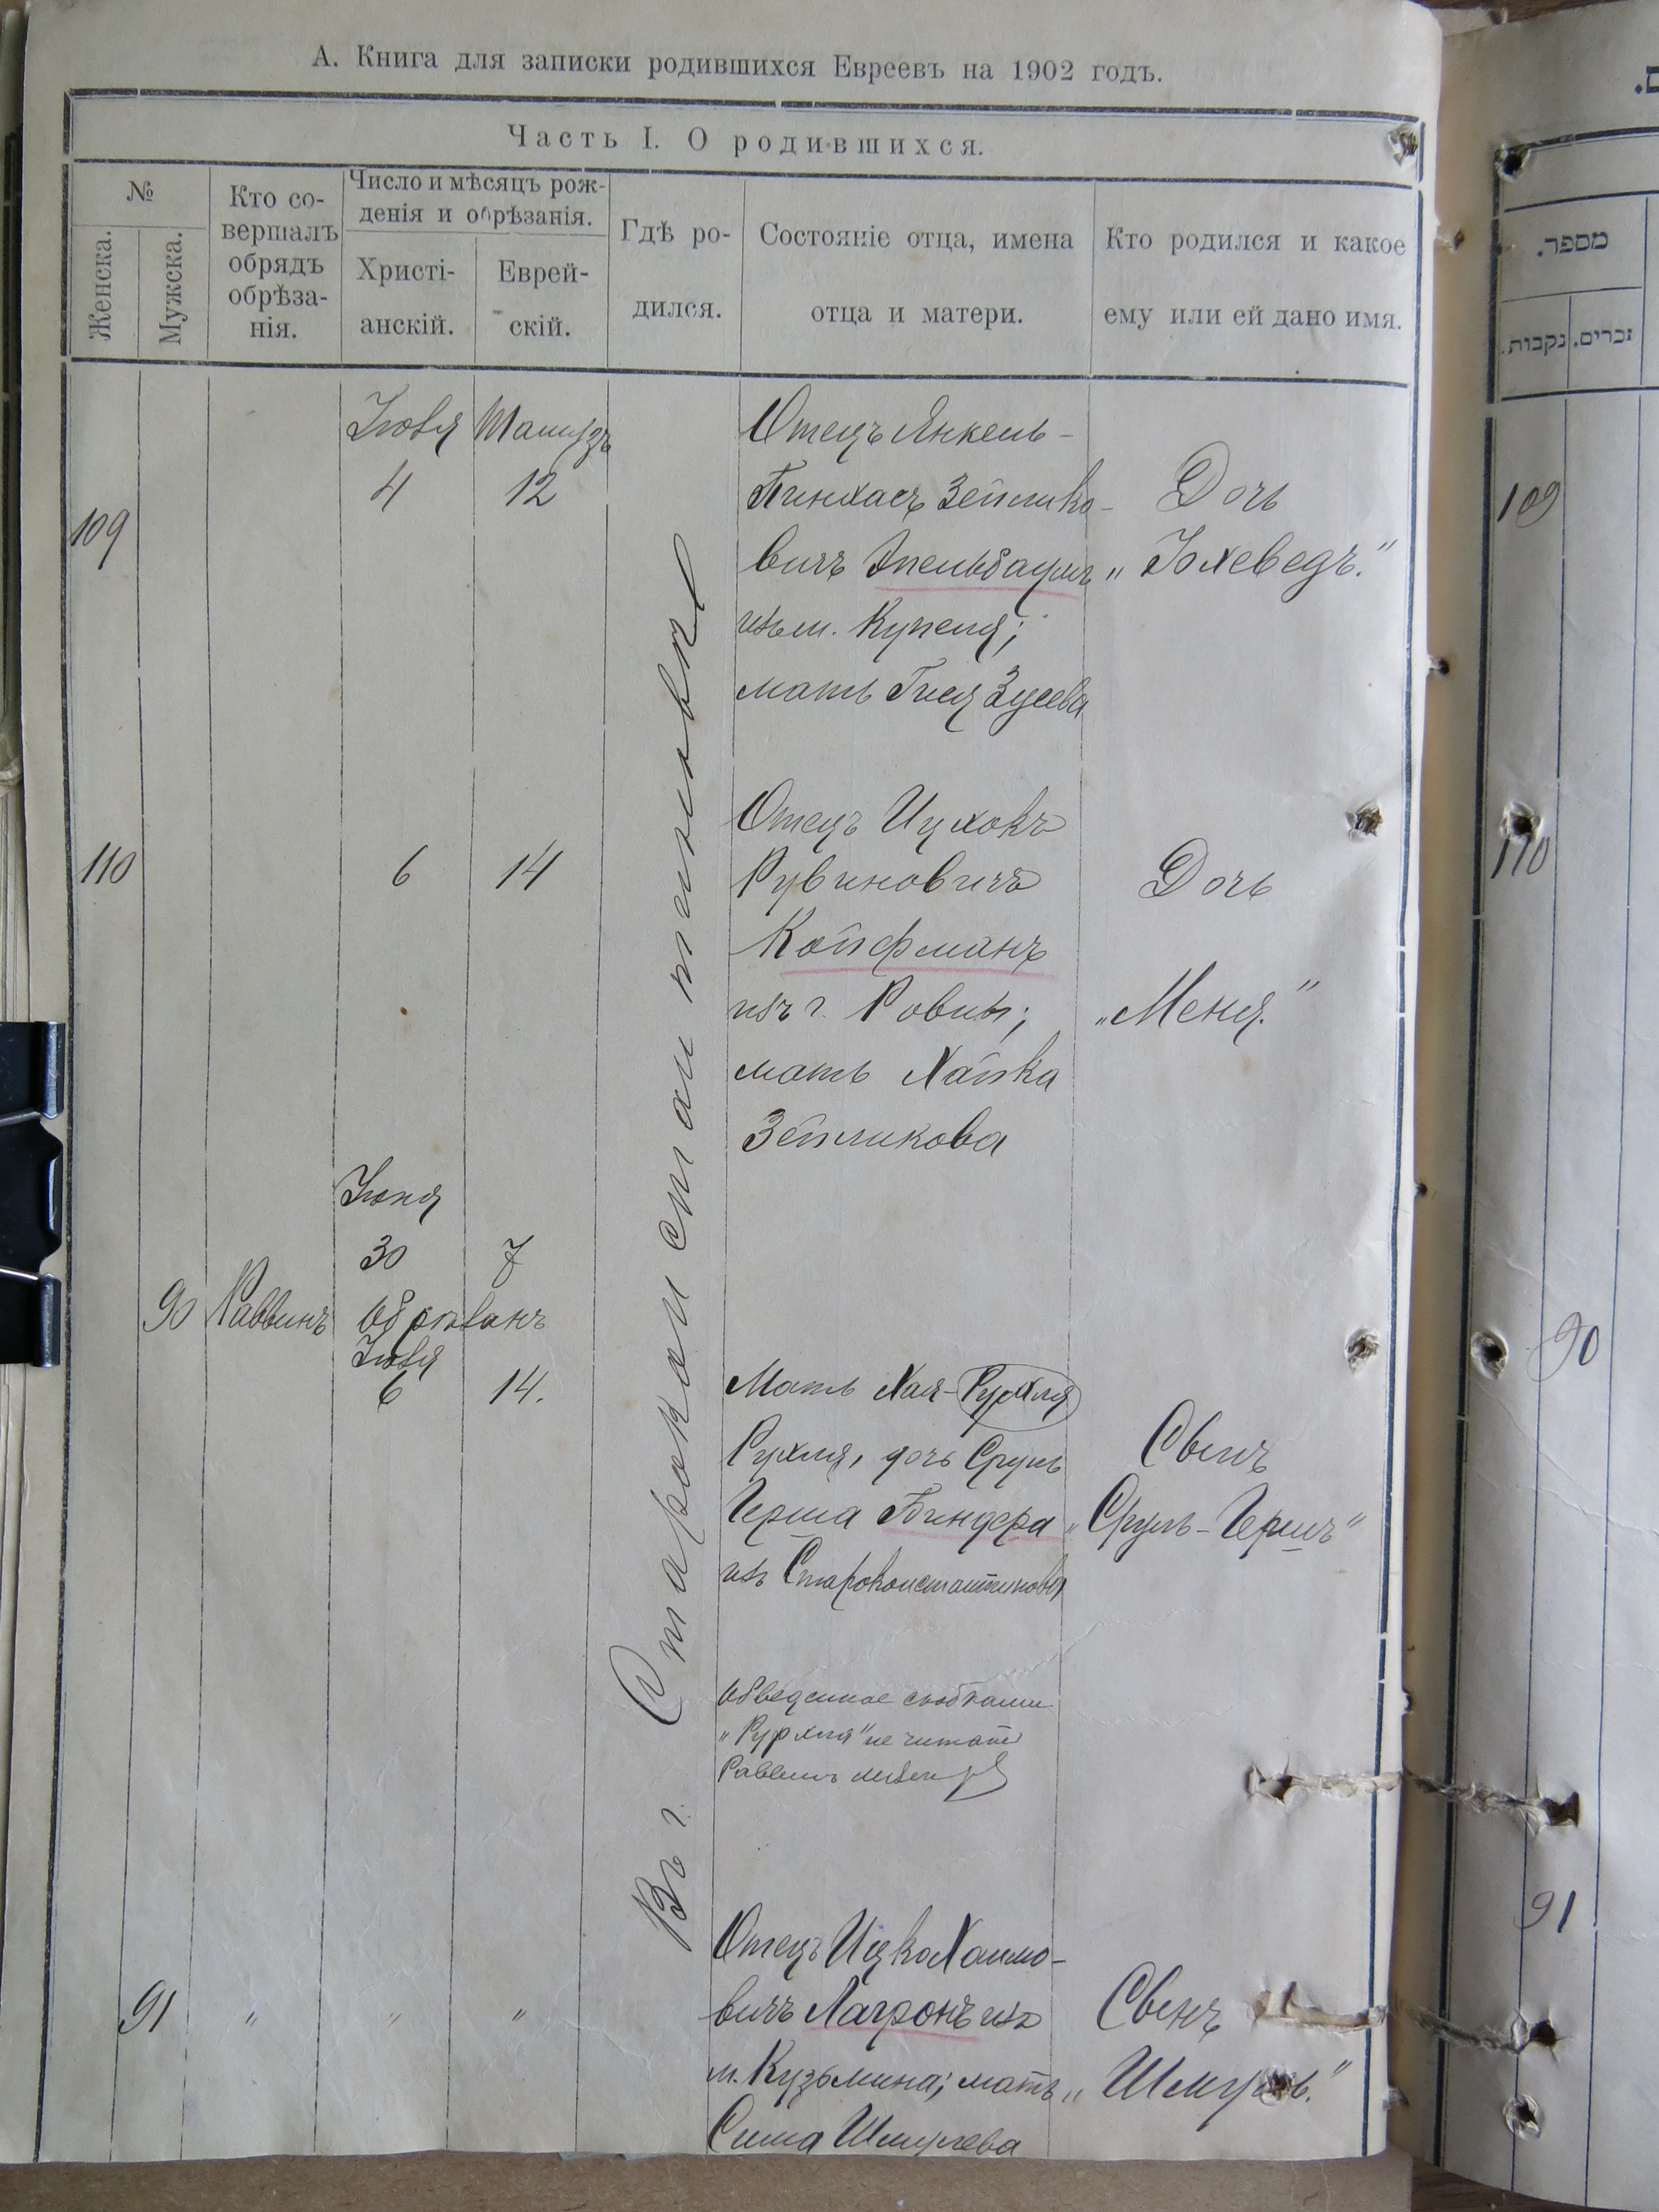 А. Книга для записки родившихся Евреевъ на 1902 годъ.
Часть I. О родившихся.
№
Женска.
Мужска.
Кто со-
вершалъ
обрядъ
обрѣза-
нія.
Число и мѣсяцъ рож-
денія и обрѣзанія.
Христі-
анскій.
Еврей-
скій.
Гдѣ ро-
дился.
Состояніе отца, имена
отца и матери.
Кто родился и какое
ему или ей дано имя.
Въ г. Староконстантиновѣ
109
Іюля
4
Тамузъ
12
Отецъ Янкель-
Пинхасъ Зейлико-
вичъ Эпельбаумъ
изъ м. Купеля;
мать Гися Зусева
Дочь
„Юхеведъ.“
110
6
14
Отецъ Ицхокъ
Рувиновичъ
Койфманъ
изъ г. Ровны;
мать Хайка
Зейликова
Дочь
„Меня.“
90
Раввинъ
Іюня
30
7
Обрѣзанъ
Іюля
6
14.
Мать Хая-Рурхля
Рухля, дочь Сруль
Герша Биндера
изъ Староконстантинова
Обведенное скобками
„Рурхля“ не читать
Раввинъ
Сынъ
„Сруль-Гершъ“
91
"
"
"
Отецъ Ицко Хаимо-
вичъ Лагронъ изъ
м. Кузьмина; мать
Сима Шмулева
Сынъ
„Шмуль.“
מספר.
נקבות.
זכרים.
109
110
90
91